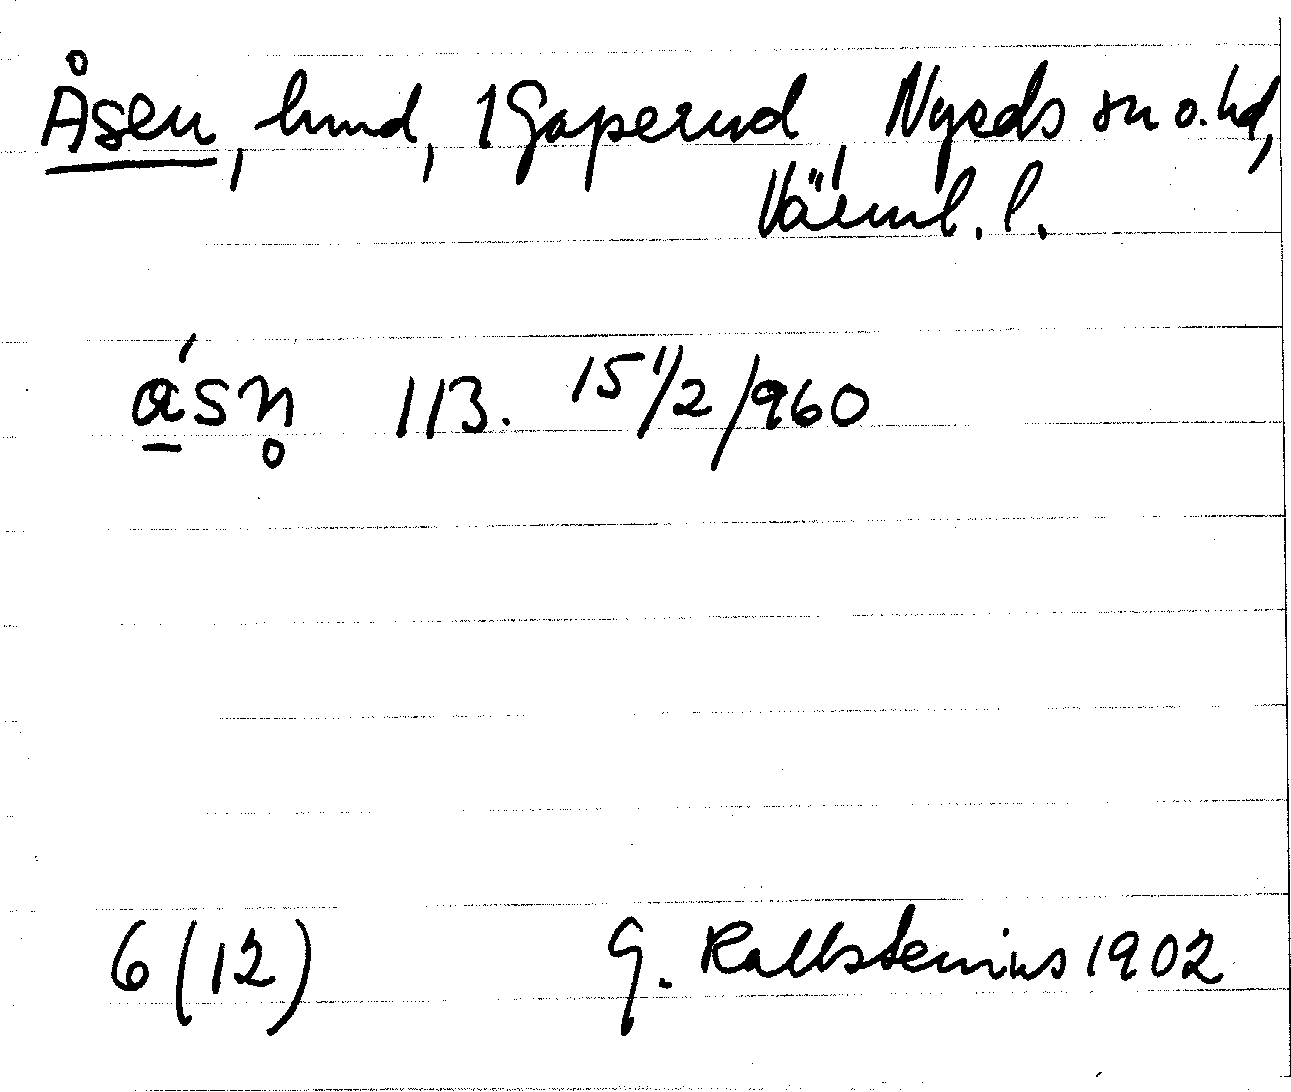 Åsen, hmd, 1 Gaperud, Nyeds sn o. hd,
Värml. l.
ásn̥ 113. 15 1/2/960
6 (12) G. Kallstenius 1902